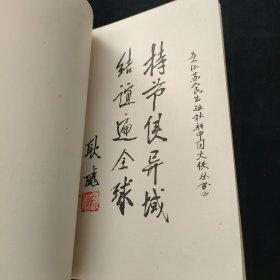 为江苏人民出版社新中国大使丛书
持节侯异域
结谊遍全球
耿飚